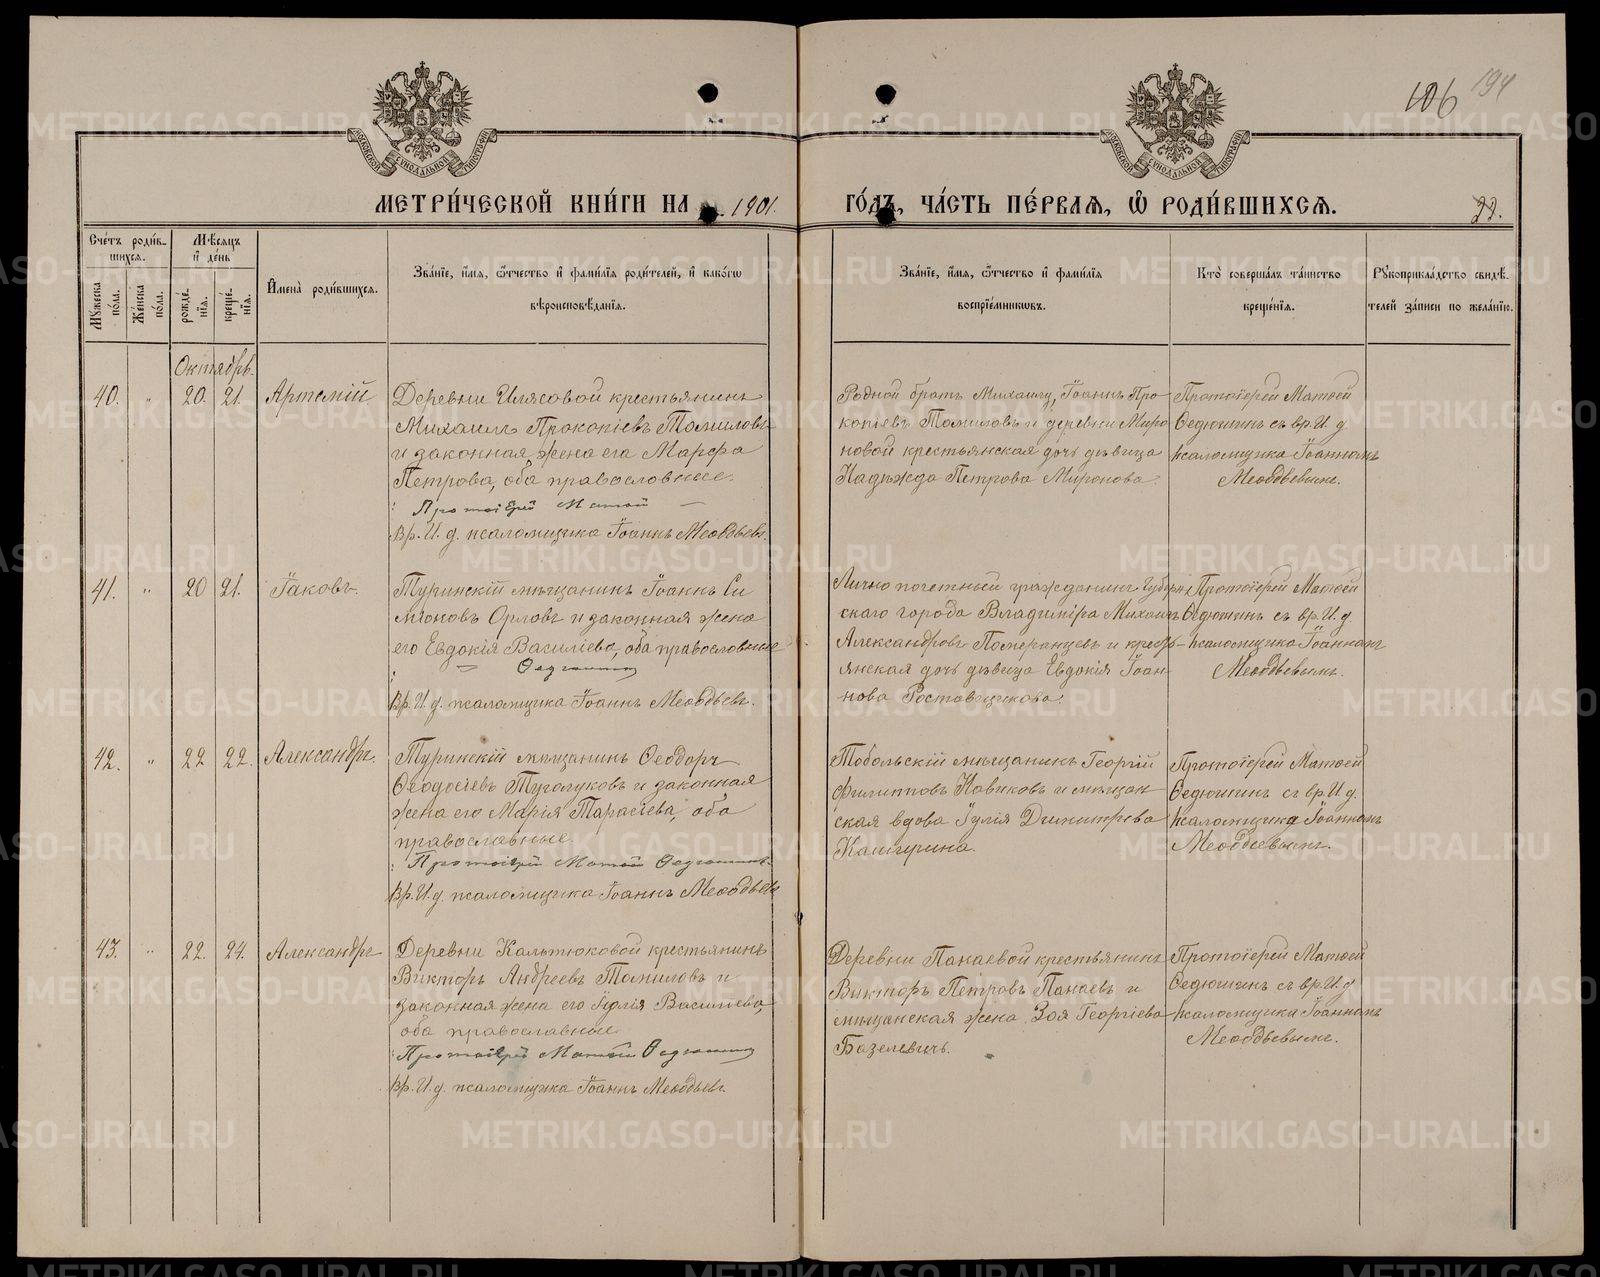 106 194
МЕТРИ́ЧЕСКОЙ КНИ́ГИ НА 1901.
ГО́ДЪ, ЧА́СТЬ ПЕ́РВАЯ, Ѡ РОДИ́ВШИХСЯ.
22.
Сче́тъ роди́в-
шихся.
Му́жеска по́ла.
Же́нска по́ла.
Мѣ́сяцъ и҆ де́нь
рожде́-нїя.
креще́-нїя.
И҆мена̀ роди́вшихся.
Зва́нїе, и҆́мя, ѻ҆́тчество и҆ фами́лїя роди́телей, и҆ како́гѡ
вѣроисповѣ́данїя.
Зва́нїе, и҆́мя, ѻ҆́тчество и҆ фами́лїя
воспрїе́мниковъ.
Кто̀ соверша́лъ та́инство
креще́нїя.
Рꙋкоприкла́дство свидѣ́-
телей за́писи по жела́нїю.
Октябрь.
40. " 20. 21. Артемій
Деревни Илясовой крестьянинъ
Михаилъ Прокопіевъ Томиловъ
и законная жена его Марфа
Петрова, оба православные.
Протоіерей Матѳей
Вр. И. д. псаломщика Іоаннъ Меѳодьевъ.
Родной братъ Михаилу, Іоаннъ Про-
копіевъ Томиловъ и деревни Миро
новой крестьянская дочь дѣвица
Надежда Петрова Миронова.
Протоіерей Матѳей
Ѳедюшинъ съ вр. И. д.
псаломщика Іоанномъ
Меѳодьевымъ.
41. " 20 21. Іаковъ.
Туринскій мѣщанинъ Іоаннъ Си
меоновъ Орловъ и законная жена
его Евдокія Василіева, оба православные
Ѳедюшинъ
Вр. И. д. псаломщика Іоаннъ Меѳодьевъ.
Лично почетный гражданинъ Губерн
скаго города Владиміра Михаилъ
Александровъ Померанцевъ и кресть-
янская дочь дѣвица Евдокія Іоан-
нова Ростовщикова.
Протоіерей Матѳей
Ѳедюшинъ съ вр. И. д.
псаломщика Іоанномъ
Меѳодьевымъ.
42. " 22 22. Александръ.
Туринскій мѣщанинъ Ѳеодоръ
Ѳеодосіевъ Туголуковъ и законная
жена его Марія Тарасіева, оба
православные.
Протоіерей Матѳей Ѳедюшинъ.
Вр. И. д. псаломщика Іоаннъ Меѳодьевъ
Тобольскій мѣщанинъ Георгій
Филипповъ Новиковъ и мѣщан
ская вдова Іулія Димитріева
Кашерина.
Протоіерей Матѳей
Ѳедюшинъ съ вр. И. д.
псаломщика Іоанномъ
Меѳодьевымъ.
43. " 22. 24. Александръ
Деревни Кальтюковой крестьянинъ
Викторъ Андреевъ Томиловъ и
законная жена его Іулія Василіева,
оба православные.
Протоіерей Матѳей Ѳедюшинъ
Вр. И. д. псаломщика Іоаннъ Меѳодьевъ.
Деревни Панаевой крестьянинъ
Викторъ Петровъ Панаевъ и
мѣщанская жена Зоя Георгіева
Базелевичъ.
Протоіерей Матѳей
Ѳедюшинъ съ вр. И. д.
псаломщика Іоанномъ
Меѳодьевымъ.
METRIKI.GASO-URAL.RU